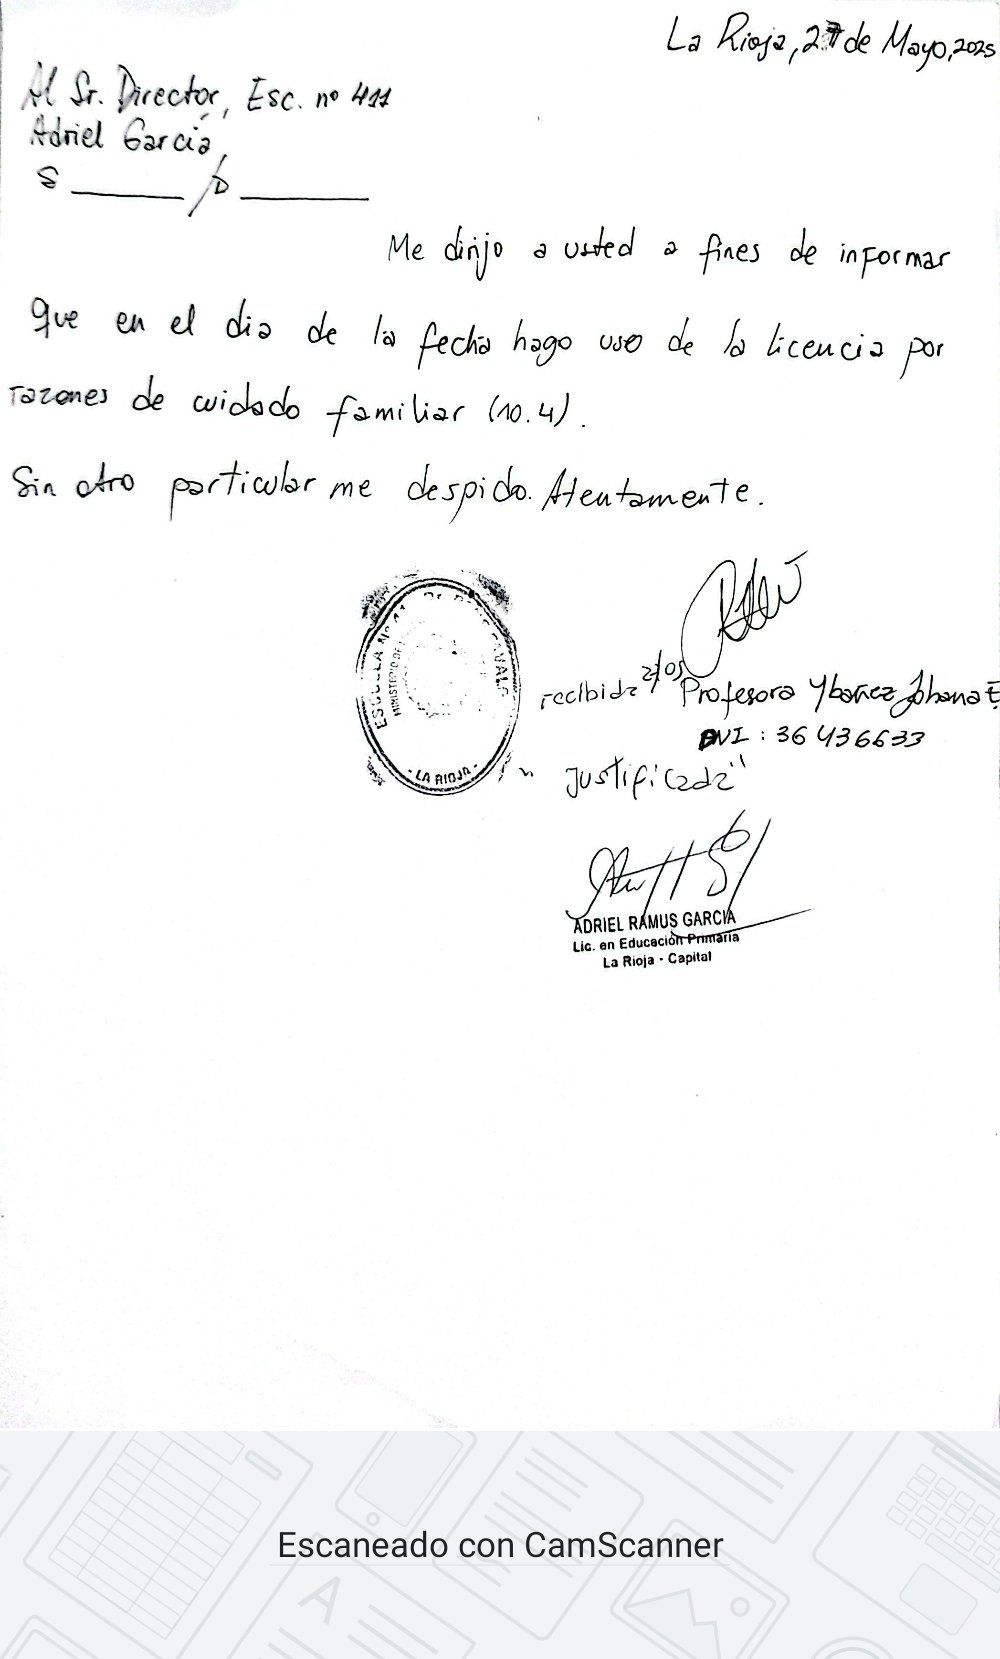 La Rioja, 27 de Mayo, 2025
Al Sr. Director, Esc. nº 411
Adriel García,
S ______ /D ______
Me dirijo a usted a fines de informar
que en el dia de la fecha hago uso de la licencia por
razones de cuidado familiar (10.4).
Sin otro particular me despido. Atentamente.
ESCUELA Nº
MINISTERIO DE
- LA RIOJA -
recibida
Profesora Ybañez Johana E.
DNI : 36 436633
"Justificada"
ADRIEL RAMUS GARCIA
Lic. en Educación Primaria
La Rioja - Capital
Escaneado con CamScanner